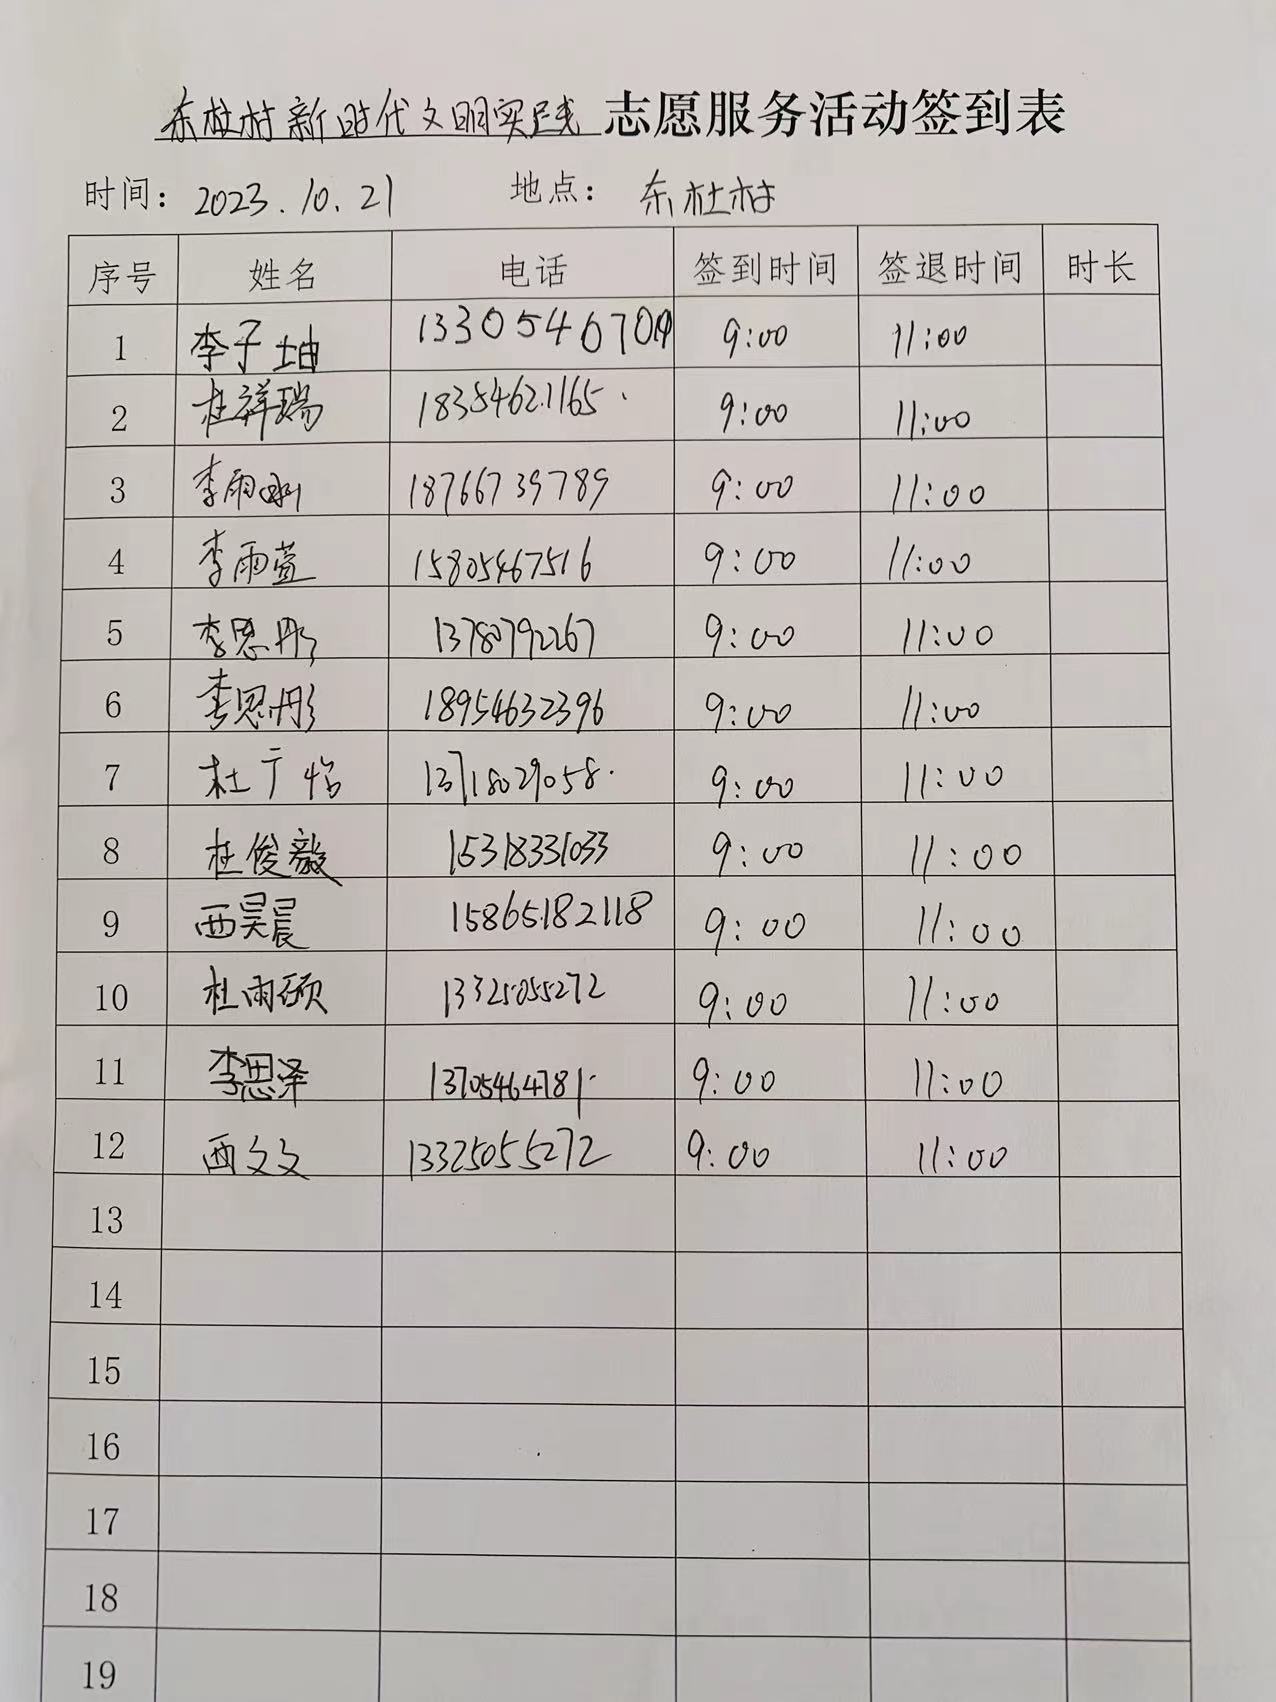 东杜村新时代文明实践 志愿服务活动签到表
时间: 2023.10.21 地点: 东杜村
序号 姓名 电话 签到时间 签退时间 时长
1 李子坤 1330546 9:00 11:00
2 杜祥瑞 18384621165 9:00 11:00
3 李雨 18766739789 9:00 11:00
4 李雨萱 15805467516 9:00 11:00
5 李恩彤 13780792267 9:00 11:00
6 李恩彤 18954632396 9:00 11:00
7 杜广怡 13718029058 9:00 11:00
8 杜俊毅 15318331033 9:00 11:00
9 西昊晨 15865182118 9:00 11:00
10 杜雨硕 13325055272 9:00 11:00
11 李思泽 13705464781 9:00 11:00
12 西文文 13325055272 9:00 11:00
13
14
15
16
17
18
19